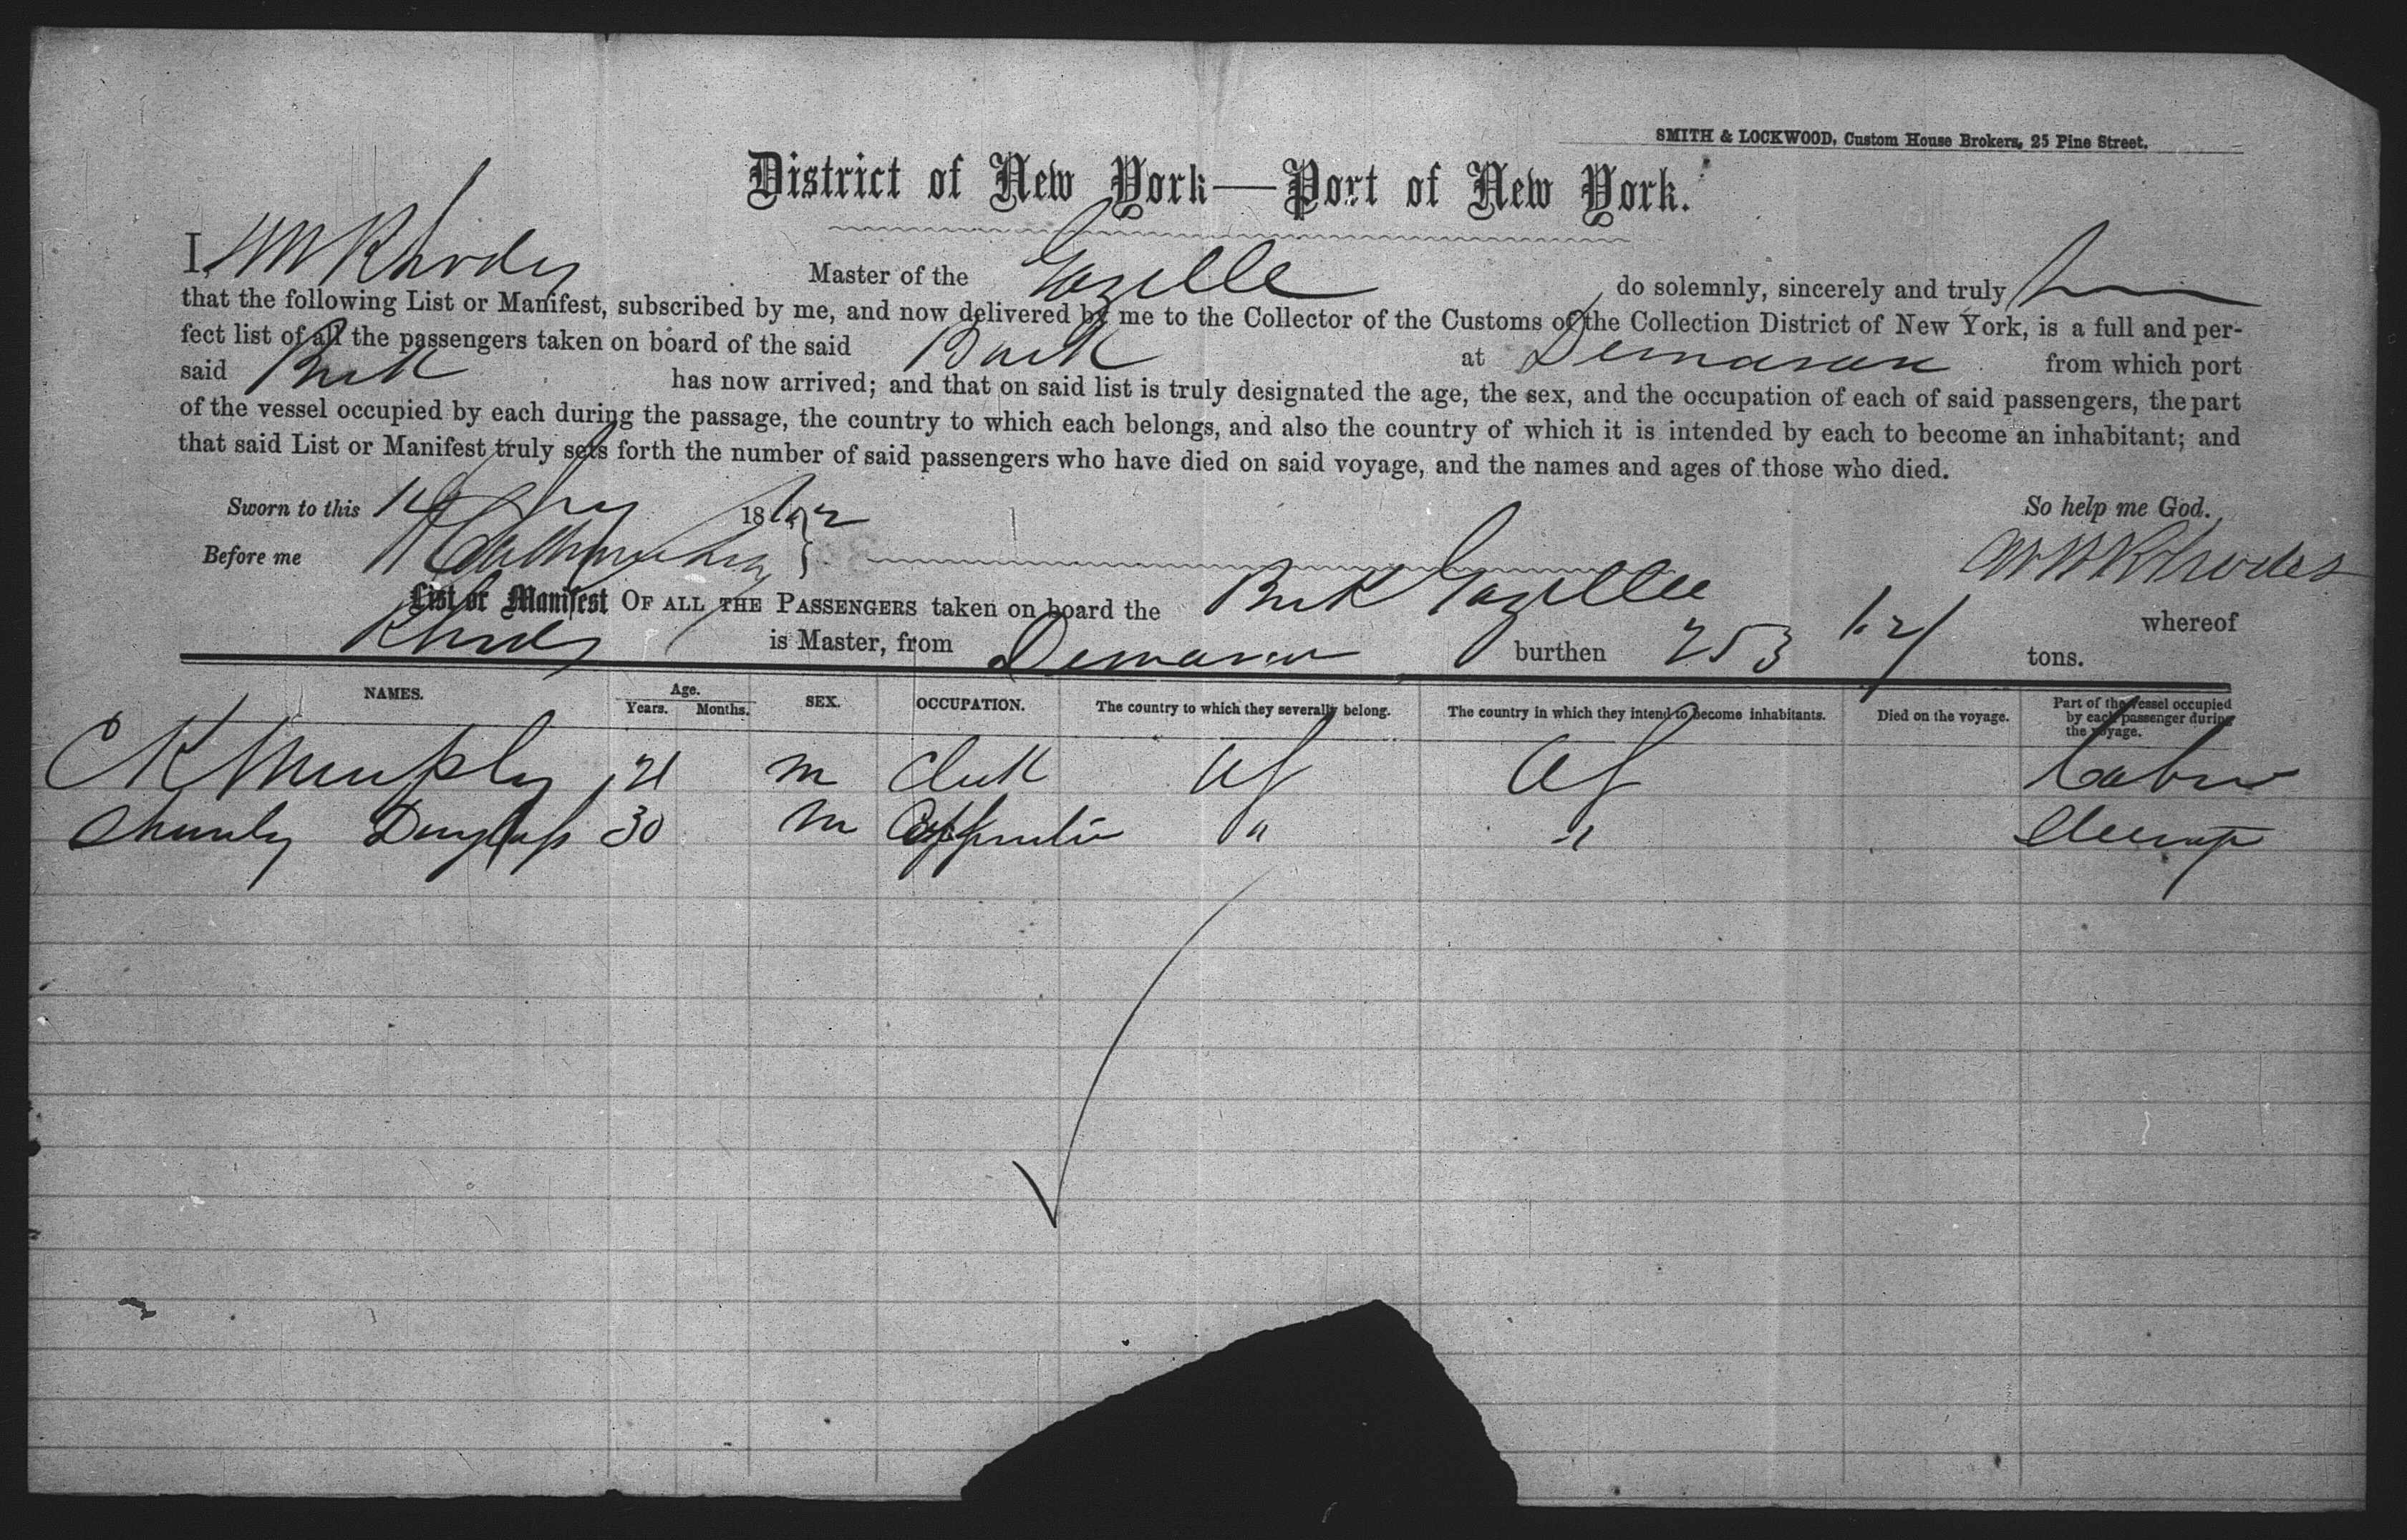 SMITH & LOCKWOOD, Custom House Brokers, 25 Pine Street.
District of New York—Port of New York.
I, WM Rhodes Master of the Gazelle do solemnly, sincerely and truly
that the following List or Manifest, subscribed by me, and now delivered by me to the Collector of the Customs of the Collection District of New York, is a full and per-
fect list of all the passengers taken on board of the said Bark at Demarara from which port
said Bark has now arrived; and that on said list is truly designated the age, the sex, and the occupation of each of said passengers, the part
of the vessel occupied by each during the passage, the country to which each belongs, and also the country of which it is intended by each to become an inhabitant; and
that said List or Manifest truly sets forth the number of said passengers who have died on said voyage, and the names and ages of those who died.
Sworn to this 18 So help me God.
Before me Rhodes
List or Manifest OF ALL THE PASSENGERS taken on board the Bark Gazelle whereof
Rhodes is Master, from Demarara burthen 253 tons.
NAMES. Age. Years. Months. SEX. OCCUPATION. The country to which they severally belong. The country in which they intend to become inhabitants. Died on the voyage. Part of the vessel occupied by each passenger during the voyage.
C K Murphy 21 m Clerk US US Cabin
Douglass 30 m " " Steerage